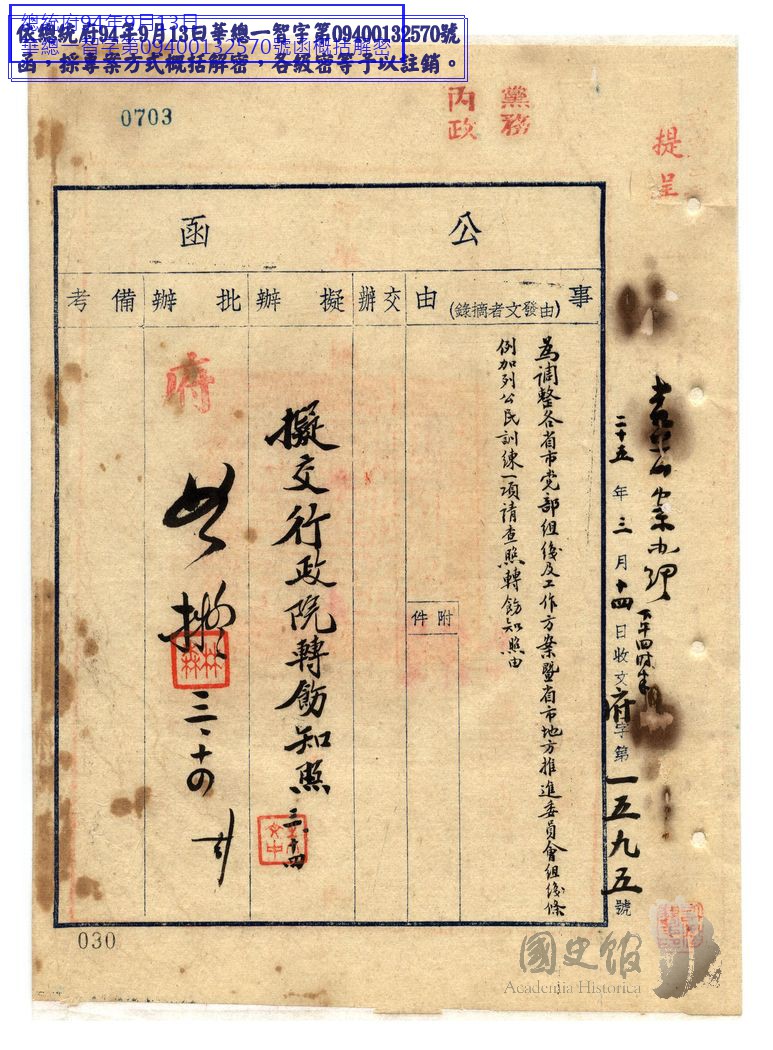 總統府94年9月13日
華總一智字第09400132570號函概括解密
依總統府94年9月13日華總一智字第09400132570號
函，採專案方式概括解密，各級密等予以註銷。
0703
黨務
內政
提呈
公函
事由(由發文者摘錄)
交辦
擬辦
批辦
備考
附件
為調整各省市党部組織及工作方案暨省市地方推進委員會組織條
例加列公民訓練一項請查照轉飭知照由
擬交行政院轉飭知照
三、十四
府
如擬
三、十四
二十五年三月十四日收文府字第一五九五號
下午四時半
030
國史館
Academia Historica